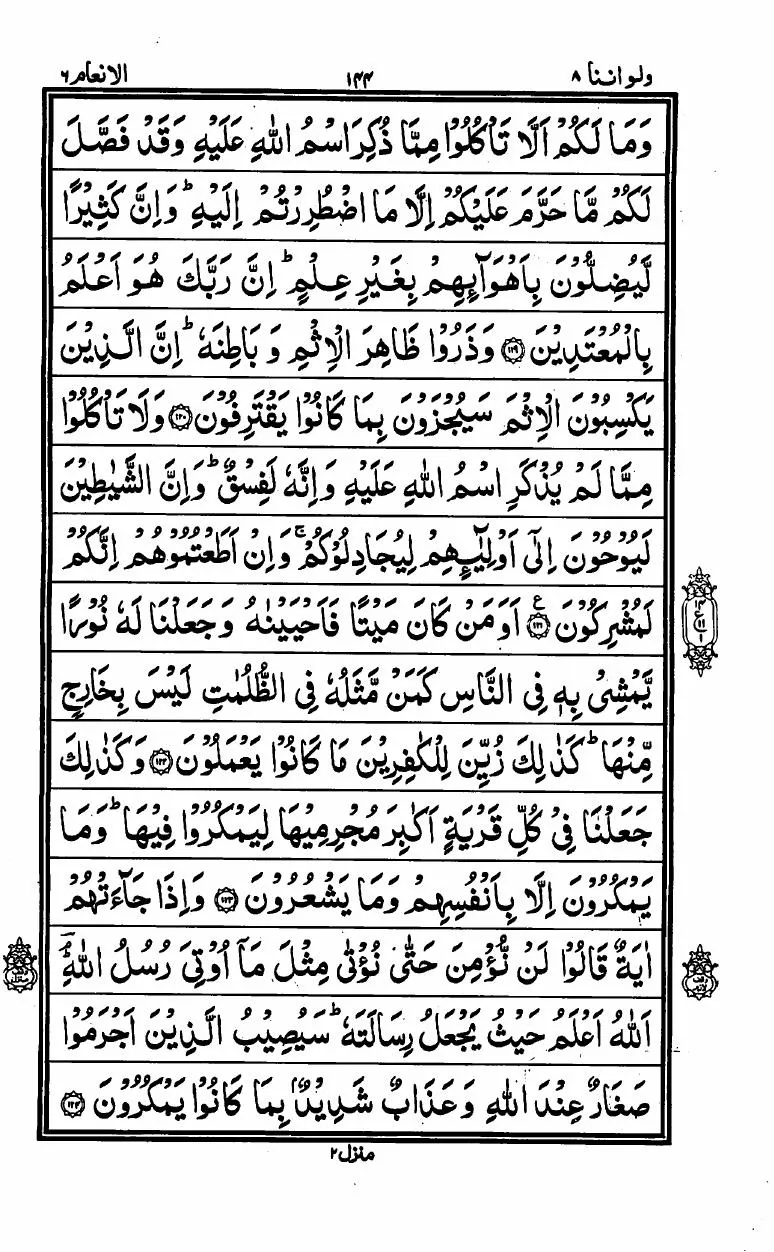 ولو اننا ۸
۱۴۴
الانعام ۶
وَمَا لَكُمْ اَلَّا تَاْكُلُوْا مِمَّا ذُكِرَ اسْمُ اللّٰهِ عَلَيْهِ وَقَدْ فَصَّلَ
لَكُمْ مَّا حَرَّمَ عَلَيْكُمْ اِلَّا مَا اضْطُرِرْتُمْ اِلَيْهِ ؕ وَاِنَّ كَثِيْرًا
لَّيُضِلُّوْنَ بِاَهْوَآئِهِمْ بِغَيْرِ عِلْمٍ ؕ اِنَّ رَبَّكَ هُوَ اَعْلَمُ
بِالْمُعْتَدِيْنَ ۝۱۱۹ وَذَرُوْا ظَاهِرَ الْاِثْمِ وَ بَاطِنَهٗ ؕ اِنَّ الَّذِيْنَ
يَكْسِبُوْنَ الْاِثْمَ سَيُجْزَوْنَ بِمَا كَانُوْا يَقْتَرِفُوْنَ ۝۱۲۰ وَلَا تَاْكُلُوْا
مِمَّا لَمْ يُذْكَرِ اسْمُ اللّٰهِ عَلَيْهِ وَاِنَّهٗ لَفِسْقٌ ؕ وَاِنَّ الشَّيٰطِيْنَ
لَيُوْحُوْنَ اِلٰٓى اَوْلِيٰٓئِهِمْ لِيُجَادِلُوْكُمْ ۚ وَاِنْ اَطَعْتُمُوْهُمْ اِنَّكُمْ
لَمُشْرِكُوْنَ ۝۱۲۱ ع اَوَمَنْ كَانَ مَيْتًا فَاَحْيَيْنٰهُ وَجَعَلْنَا لَهٗ نُوْرًا
يَّمْشِىْ بِهٖ فِى النَّاسِ كَمَنْ مَّثَلُهٗ فِى الظُّلُمٰتِ لَيْسَ بِخَارِجٍ
مِّنْهَا ؕ كَذٰلِكَ زُيِّنَ لِلْكٰفِرِيْنَ مَا كَانُوْا يَعْمَلُوْنَ ۝۱۲۲ وَكَذٰلِكَ
جَعَلْنَا فِىْ كُلِّ قَرْيَةٍ اَكٰبِرَ مُجْرِمِيْهَا لِيَمْكُرُوْا فِيْهَا ؕ وَمَا
يَمْكُرُوْنَ اِلَّا بِاَنْفُسِهِمْ وَمَا يَشْعُرُوْنَ ۝۱۲۳ وَاِذَا جَآءَتْهُمْ
اٰيَةٌ قَالُوْا لَنْ نُّؤْمِنَ حَتّٰى نُؤْتٰى مِثْلَ مَآ اُوْتِىَ رُسُلُ اللّٰهِ ؔۘ
اَللّٰهُ اَعْلَمُ حَيْثُ يَجْعَلُ رِسَالَتَهٗ ؕ سَيُصِيْبُ الَّذِيْنَ اَجْرَمُوْا
صَغَارٌ عِنْدَ اللّٰهِ وَعَذَابٌ شَدِيْدٌۢ بِمَا كَانُوْا يَمْكُرُوْنَ ۝۱۲۴
منزل ۲